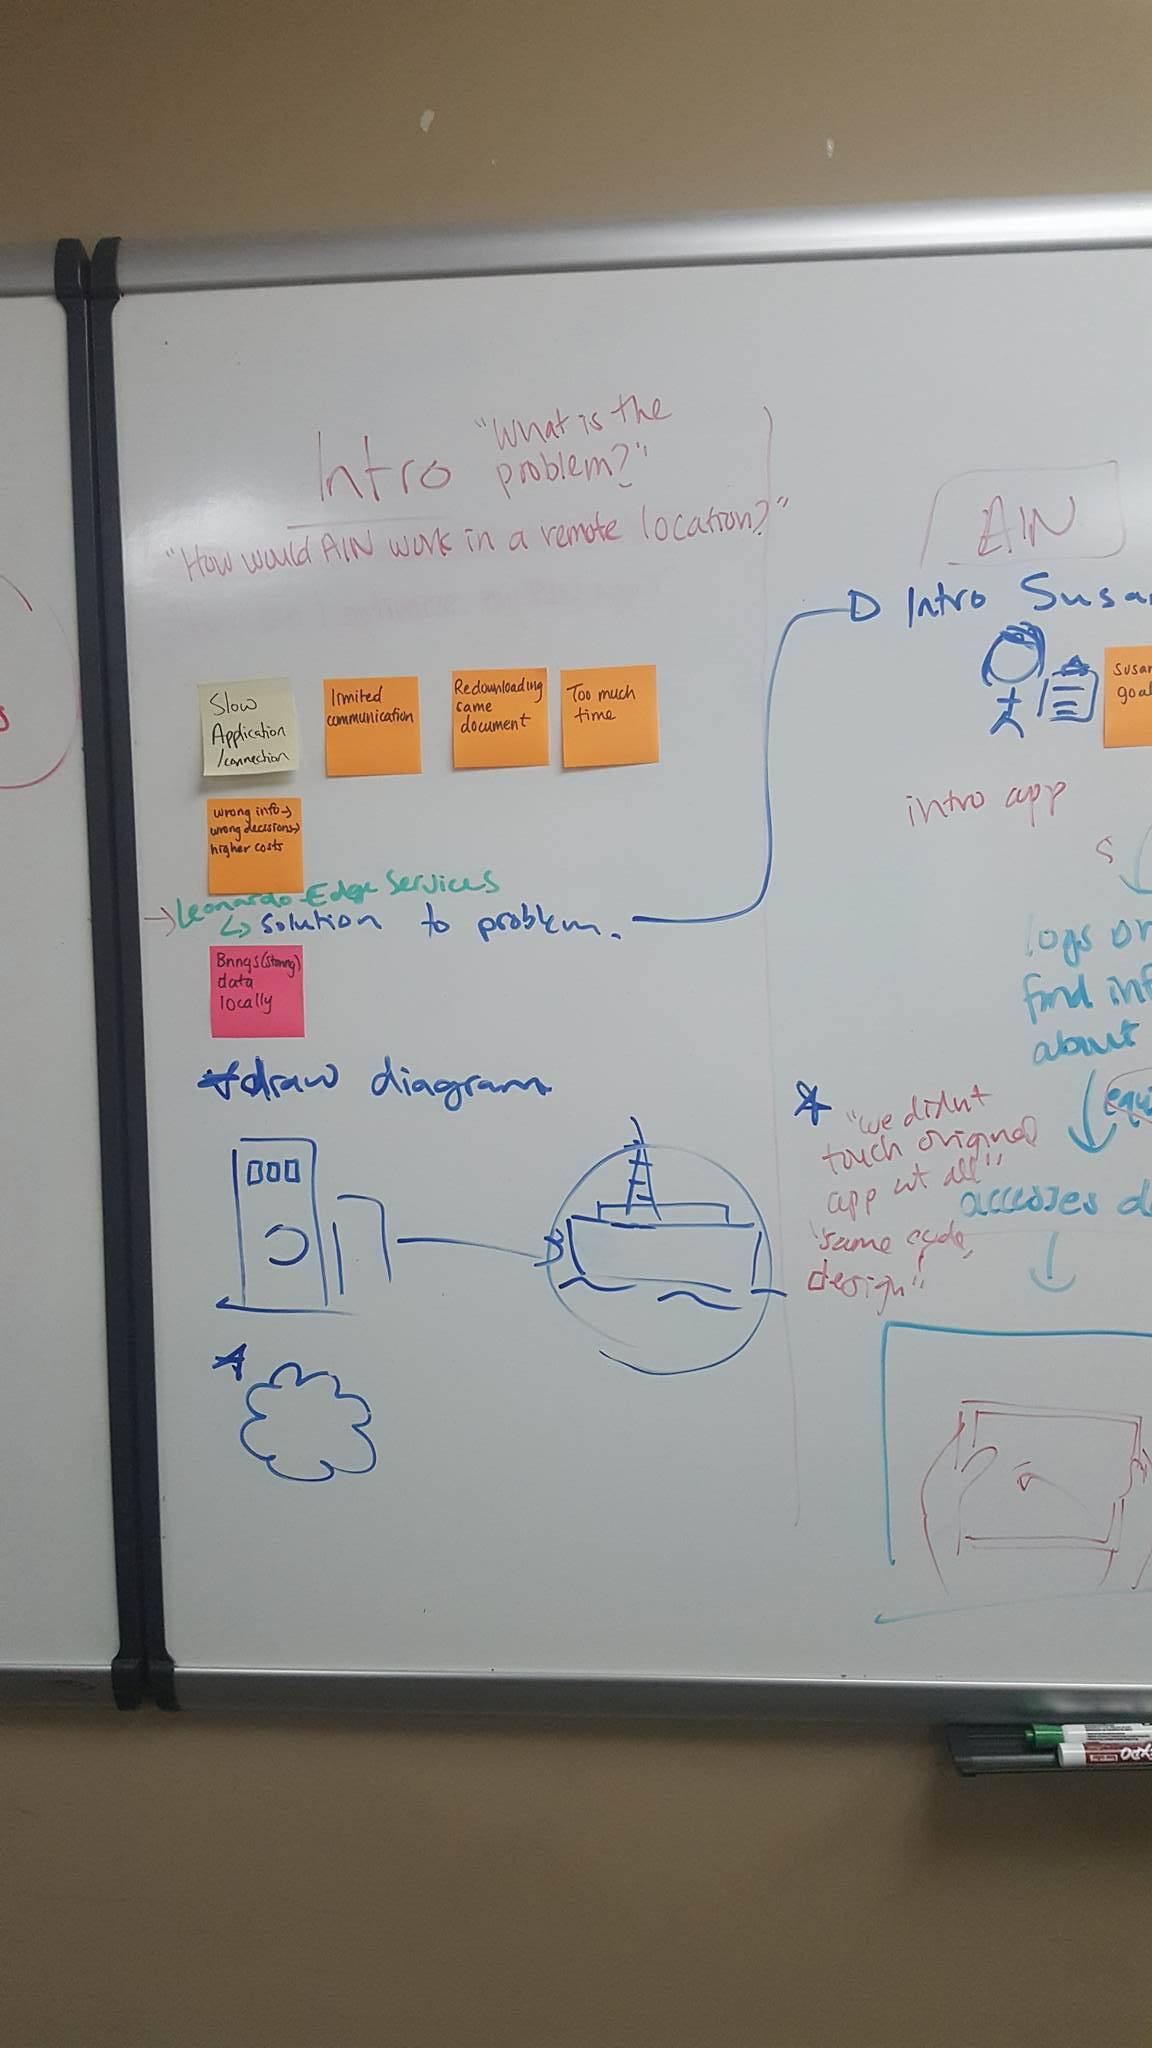 Intro
"What is the
problem?"
"How would AIN work in a remote location?"
Slow
Application
/connection
limited
communication
Redownloading
same
document
Too much
time
wrong info→
wrong decisions→
higher costs
→Leonardo Edge Services
↳ solution to problem.
Brings(storing)
data
locally
draw diagram
AIN
Intro Susa
Susan
goa
intro app
s
logs on
find inf
about
equi
"we didn't
touch original
app at all"
"same code,
design"
accesses d
s
EXPO